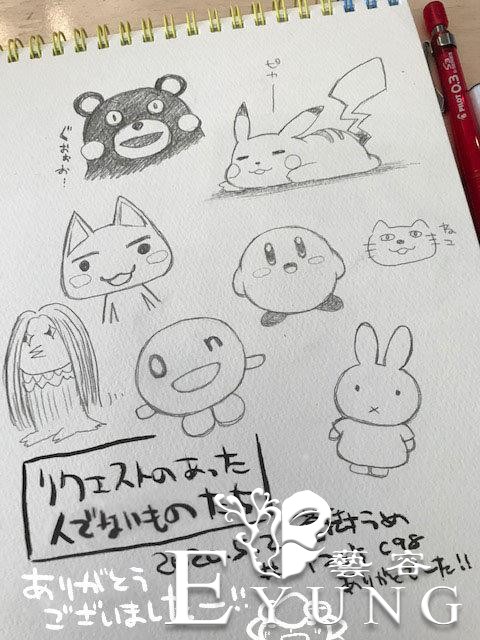 ピカ
ぐおぉぉ…
ねこ
リクエストのあった
人でないものたち
C98
ありがとうございました!!
ありがとう
ございました
藝容
EYUNG
PILOT 0.3